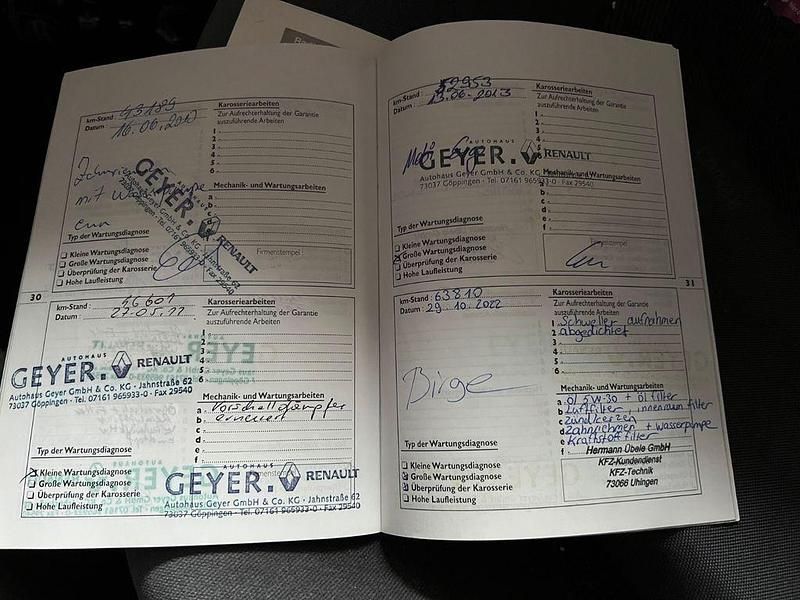 km-Stand : 43189
Datum : 16.06.2010
Karosseriearbeiten
Zur Aufrechterhaltung der Garantie
auszuführende Arbeiten
1
2
3
4
5
6
mit
Mechanik- und Wartungsarbeiten
a
b
c
d
e
f
AUTOHAUS
GEYER. RENAULT
Autohaus Geyer GmbH & Co. KG · Jahnstraße 62
73037 Göppingen · Tel. 07161 965933-0 · Fax 29540
Typ der Wartungsdiagnose
Kleine Wartungsdiagnose
Große Wartungsdiagnose
Überprüfung der Karosserie
Hohe Laufleistung
Firmenstempel
30
km-Stand : 46601
Datum : 27.05.11
Karosseriearbeiten
Zur Aufrechterhaltung der Garantie
auszuführende Arbeiten
1
2
3
4
5
6
AUTOHAUS
GEYER. RENAULT
Autohaus Geyer GmbH & Co. KG · Jahnstraße 62
73037 Göppingen · Tel. 07161 965933-0 · Fax 29540
Mechanik- und Wartungsarbeiten
a Vorschalldämpfer
b erneuert
c
d
e
f
Typ der Wartungsdiagnose
Kleine Wartungsdiagnose
Große Wartungsdiagnose
Überprüfung der Karosserie
Hohe Laufleistung
AUTOHAUS
GEYER. RENAULT
Autohaus Geyer GmbH & Co. KG · Jahnstraße 62
73037 Göppingen · Tel. 07161 965933-0 · Fax 29540
km-Stand : 52953
Datum : 13.06.2013
Karosseriearbeiten
Zur Aufrechterhaltung der Garantie
auszuführende Arbeiten
1
2
3
4
5
6
AUTOHAUS
GEYER. RENAULT
Autohaus Geyer GmbH & Co. KG · Jahnstraße 62
73037 Göppingen · Tel. 07161 965933-0 · Fax 29540
Mechanik- und Wartungsarbeiten
a
b
c
d
e
f
Typ der Wartungsdiagnose
Kleine Wartungsdiagnose
Große Wartungsdiagnose
Überprüfung der Karosserie
Hohe Laufleistung
Firmenstempel
31
km-Stand : 63810
Datum : 29.10.2022
Karosseriearbeiten
Zur Aufrechterhaltung der Garantie
auszuführende Arbeiten
1 Schweller aufnahmen
2 abgedichtet
3
4
5
6
Birge
Mechanik- und Wartungsarbeiten
a Öl 5W-30 + Öl filter
b Luftfilter, innenraum filter
c Zündkerzen
d Zahnriehmen + wasserpumpe
e Kraftstoff filter
f
Typ der Wartungsdiagnose
Kleine Wartungsdiagnose
Große Wartungsdiagnose
Überprüfung der Karosserie
Hohe Laufleistung
Hermann Übele GmbH
KFZ-Kundendienst
KFZ-Technik
73066 Uhingen